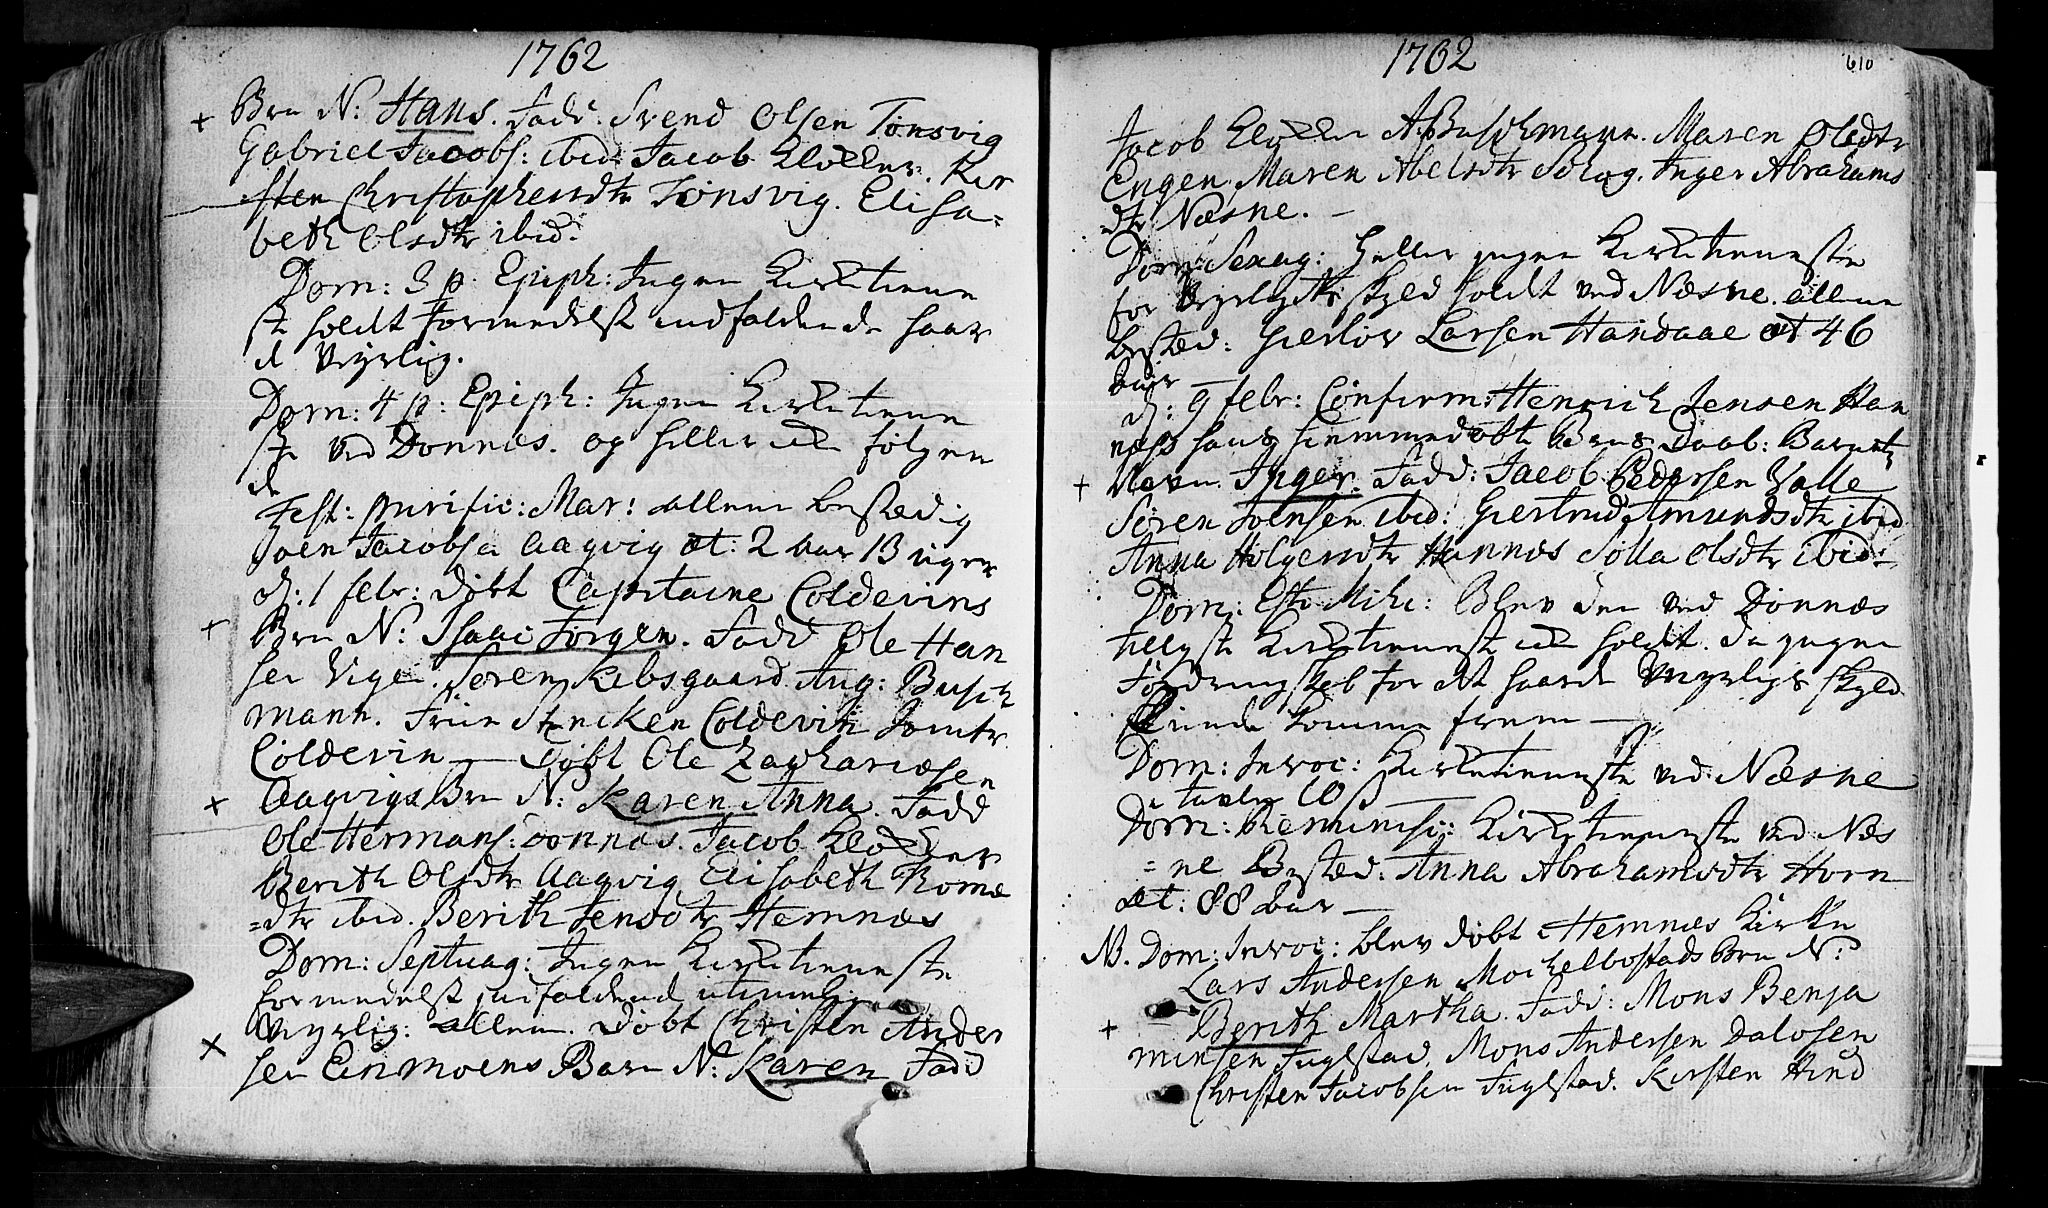 1762
+ Brn N: Hans. Fadd: Svend Olsen Tønsvig
Gabriel Jacobs: ibid: Jacob Klokker. Kir
sten Christophersdtr Tønsvig. Elisa-
beth Olsdtr ibid:
Dom: 3 p. Epiph: Ingen Kirketiene
ste holdt formedelst indfaldende haar
d Veyrlig.
Dom: 4 p: Epiph: Ingen Kirketiene
ste ved Dønnæs. og heller ved følgen
de
Fest: purific: Mar: allene bestædig
Joen Jacobsen Aagvig æt: 2 aar 13 uger
d: 1 febr: døbt Capitaine Coldevins
+ Brn N: Isaac Jørgen. Fadd Ole Han
sen Vigen. Søren Kebsgaard Aug: Busch
mann. Frue Stncken Coldevin Jomfr
Coldevin — Døbt Ole Zachariæsen
+ Aagvigs Brn N: Karen Anna. Fadd
Ole Hermans: Dønnæs. Jacob Klokker
Berith Olsdtr Aagvig Elisabeth Tome
=dtr ibid. Berith Jensdtr Hemnæs
Dom: Septuag: Ingen Kirketieneste
formedelst indfaldend utienlig
Veyrlig: allene. Døbt Christen Ander
x sen Einmoens Barn N: Karen Fadd
1762
610
Jacob Klokker A: Buschmann. Maren Olsdtr
Engen. Maren Abelsdtr Solvag. Inger Abrahams
dtr Næsne. —
Dom: Sexag: Heller ingen Kirketieneste
for Veyrligts skyld holdt ved Næsne. allene
bestæd: Giertør Larsen Handaae æt 46
aar —
d: 9 febr: Confirm: Henrich Jensen Han
næss hans hiemmedøbte Brns Daab: Barnets
+ Navn Inger. Fadd: Jacob Pedersen Valle
Søren Joensen ibid: Giertrud Amundsdtr ibid
Anna Holgersdtr Hannæs Sølla Olsdtr ibid:
Dom: Esto Mihi: Blev den ved Dønnæs
tillyste Kirketieneste ved holdt. da ingen
for det haarde Veyrligs skyld
kunde komme frem —
Dom: Invoc: Kirketieneste ved Næsne
i tavlen 10 ß —
Dom: Reminisc: Kirketieneste ved Næs
=ne Bestæd. Anna Abrahamsdtr Horn
æt: 88 aar —
NB. Dom: Invoc: blev døbt i Hemnæs Kirke
Lars Andersen Mockelbostads Brn N:
+ Berith Martha. Fadd: Mons Benja
minsen Fuglstad. Mons Andersen Dalosen
Christen Jacobsen Fuglstad. Kirsten Hind